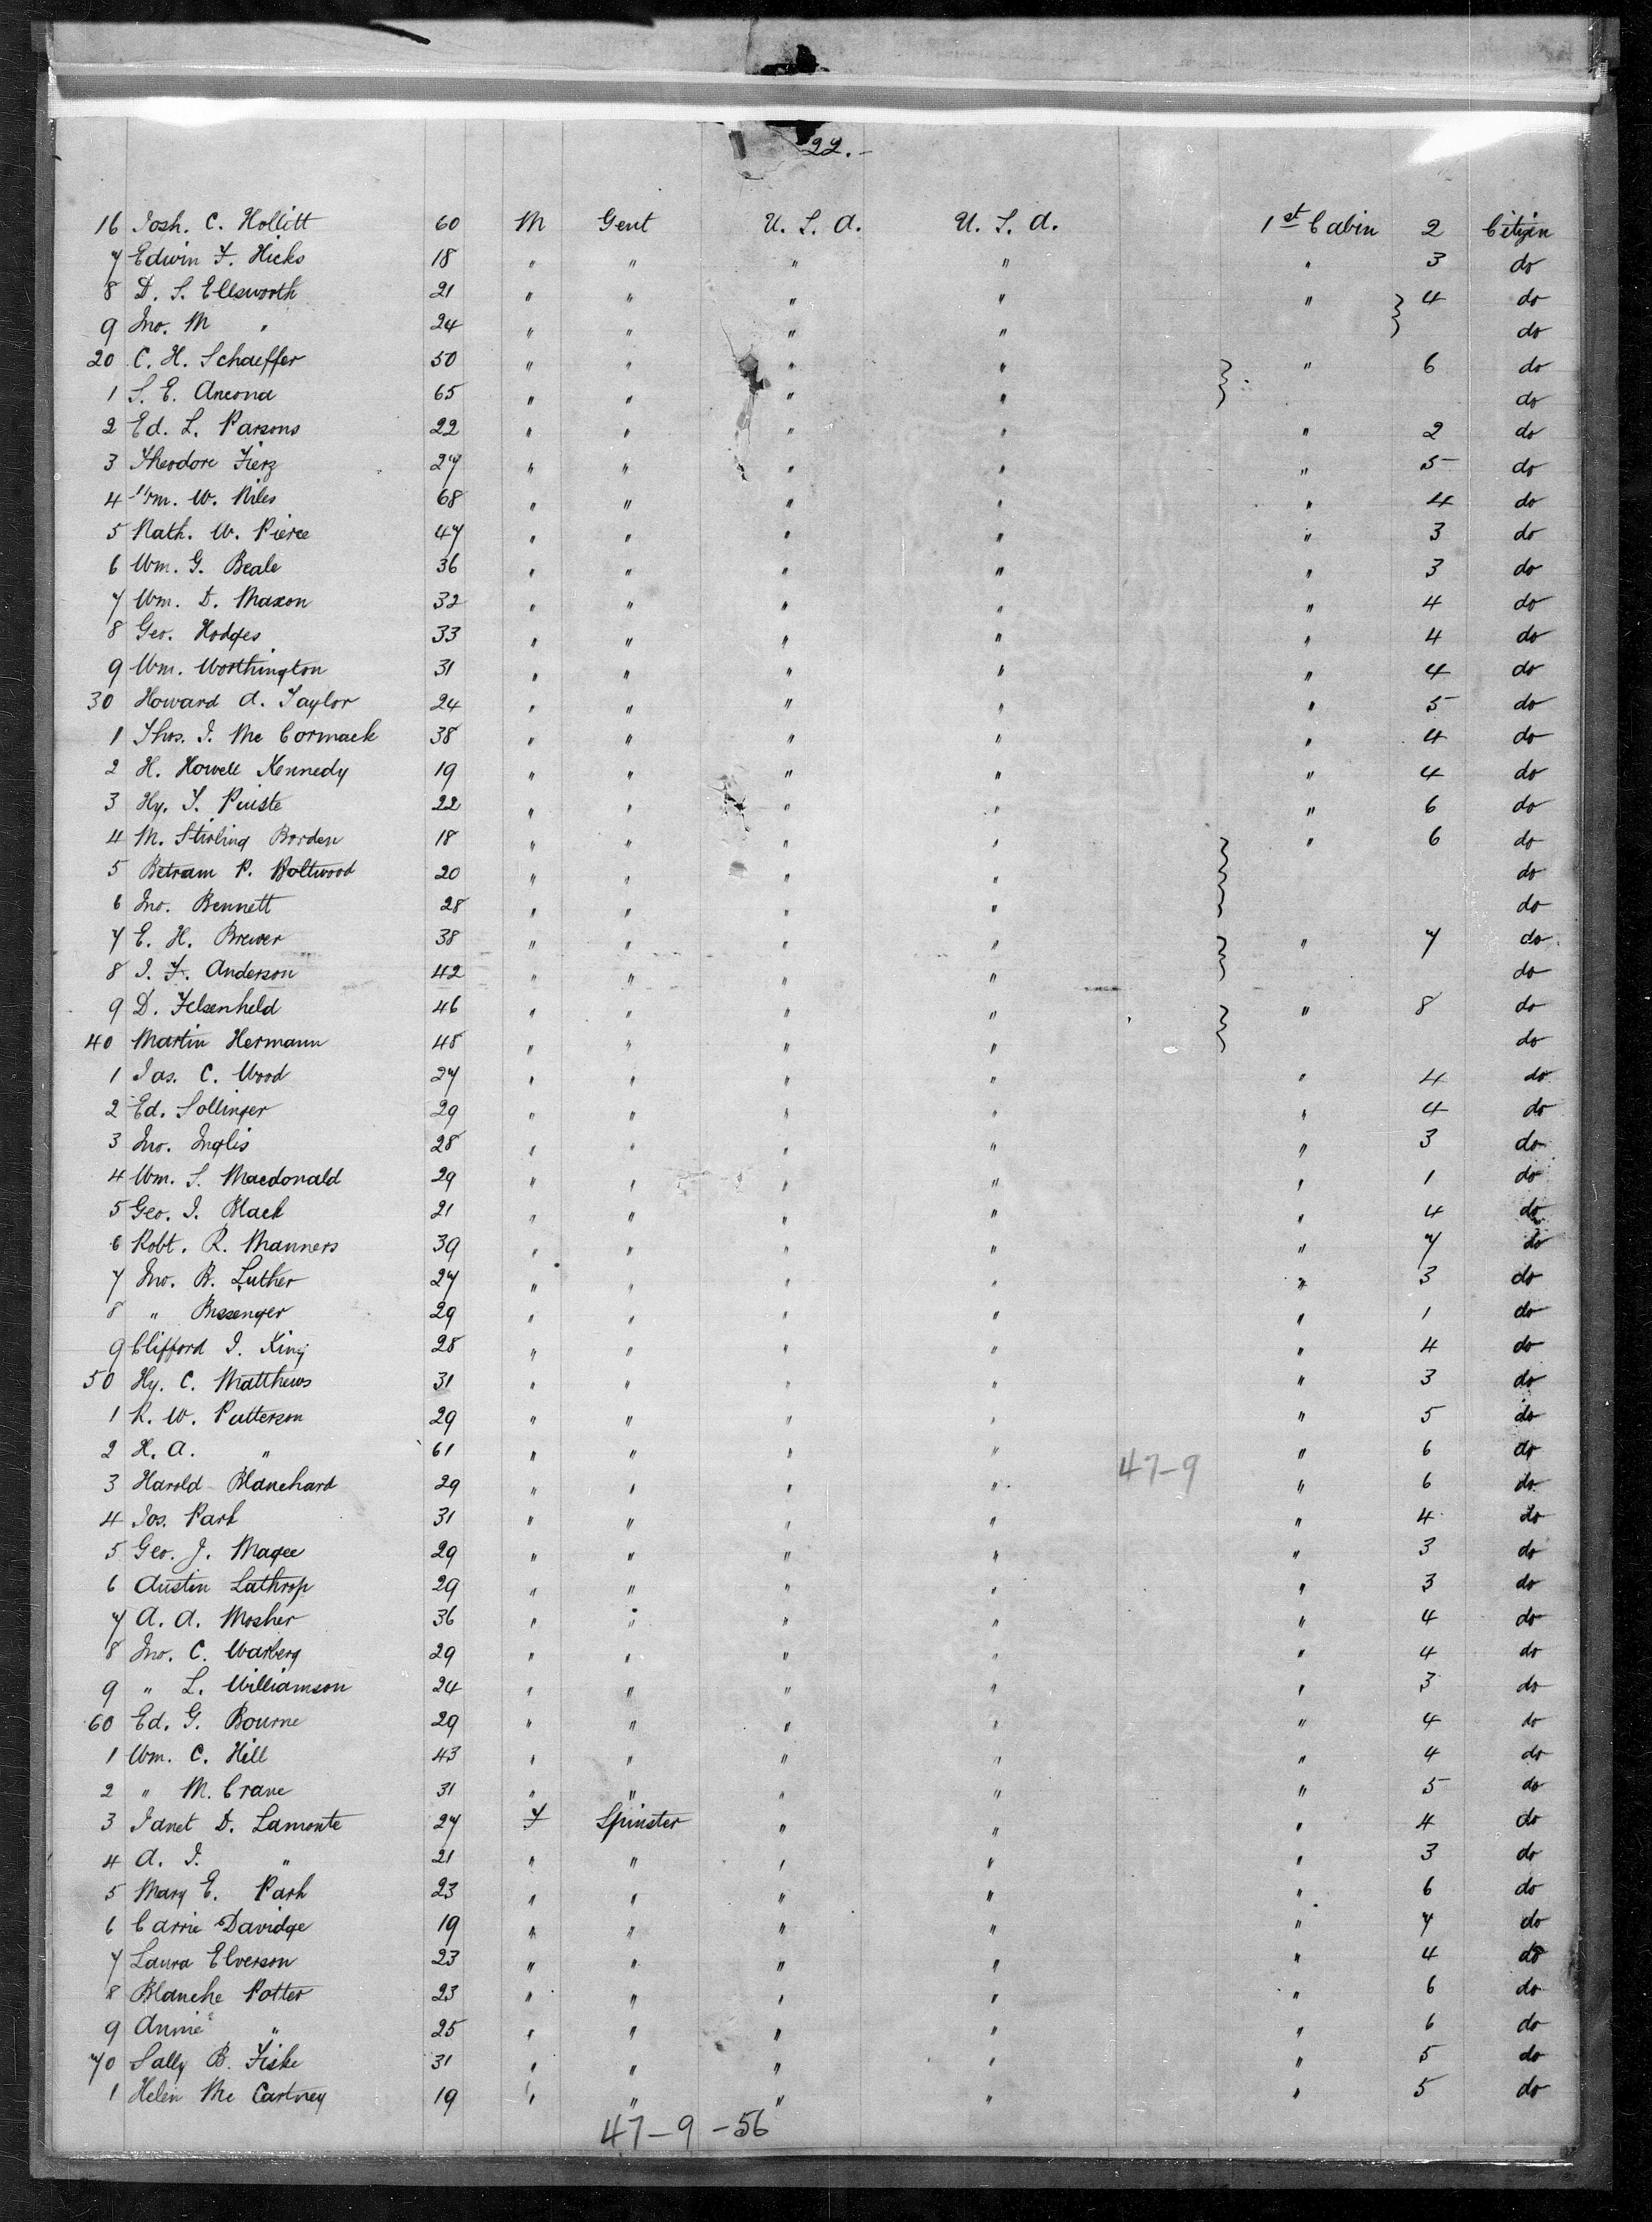 22.-
16 Josh. C. Hollitt 60 M Gent U. S. A. U. S. A. 1st Cabin 2 Citizen
7 Edwin F. Hicks 18 " " " " " 3 do
8 D. S. Ellsworth 21 " " " " " 4 do
9 Jno. M " 24 " " " " do
20 C. H. Schaeffer 50 " " " " " 6 do
1 S. E. Ancona 65 " " " " do
2 Ed. L. Parsons 22 " " " " " 2 do
3 Theodore Fierz 27 " " " " " 5 do
4 Wm. W. Niles 68 " " " " " 4 do
5 Nath. W. Pierce 47 " " " " " 3 do
6 Wm. G. Beale 36 " " " " " 3 do
7 Wm. D. Maxon 32 " " " " " 4 do
8 Geo. Hodges 33 " " " " " 4 do
9 Wm. Worthington 31 " " " " " 4 do
30 Howard A. Taylor 24 " " " " " 5 do
1 Thos. J. Mc Cormack 38 " " " " " 4 do
2 H. Howell Kennedy 19 " " " " " 4 do
3 Hy. T. 22 " " " " " 6 do
4 M. Stirling Borden 18 " " " " " 6 do
5 Betram P. Boltwood 20 " " " " do
6 Jno. Bennett 28 " " " " do
7 E. H. Brewer 38 " " " " " 7 do
8 J. F. Anderson 42 " " " " do
9 D. Felsenheld 46 " " " " " 8 do
40 Martin Hermann 48 " " " " do
1 Jas. C. Wood 27 " " " " " 4 do
2 Ed. Sollinger 29 " " " " " 4 do
3 Jno. Inglis 28 " " " " " 3 do
4 Wm. S. Macdonald 29 " " " " " 1 do
5 Geo. J. Black 21 " " " " " 4 do
6 Robt. R. Manners 39 " " " " " 7 do
7 Jno. B. Luther 27 " " " " " 3 do
8 " Bissenger 29 " " " " " 1 do
9 Clifford J. King 28 " " " " " 4 do
50 Hy. C. Matthews 31 " " " " " 3 do
1 R. W. Patterson 29 " " " " " 5 do
2 H. A. " 61 " " " " " 6 do
47-9
3 Harold Blanchard 29 " " " " " 6 do
4 Jos. Park 31 " " " " " 4 do
5 Geo. J. Magee 29 " " " " " 3 do
6 Austin Lathrop 29 " " " " " 3 do
7 A. A. Mosher 36 " " " " " 4 do
8 Jno. C. Warberg 29 " " " " " 4 do
9 " L. Williamson 24 " " " " " 3 do
60 Ed. G. Bourne 29 " " " " " 4 do
1 Wm. C. Hill 43 " " " " " 4 do
2 " M. Crane 31 " " " " " 5 do
3 Janet D. Lamonte 27 F Spinster " " " 4 do
4 A. J. " 21 " " " " " 3 do
5 Mary E. Park 23 " " " " " 6 do
6 Carrie Davidge 19 " " " " " 7 do
7 Laura Elverson 23 " " " " " 4 do
8 Blanche Potter 23 " " " " " 6 do
9 Annie " 25 " " " " " 6 do
70 Sally B. Fiske 31 " " " " " 5 do
1 Helen Mc Cartney 19 " " " " " 5 do
47-9-56